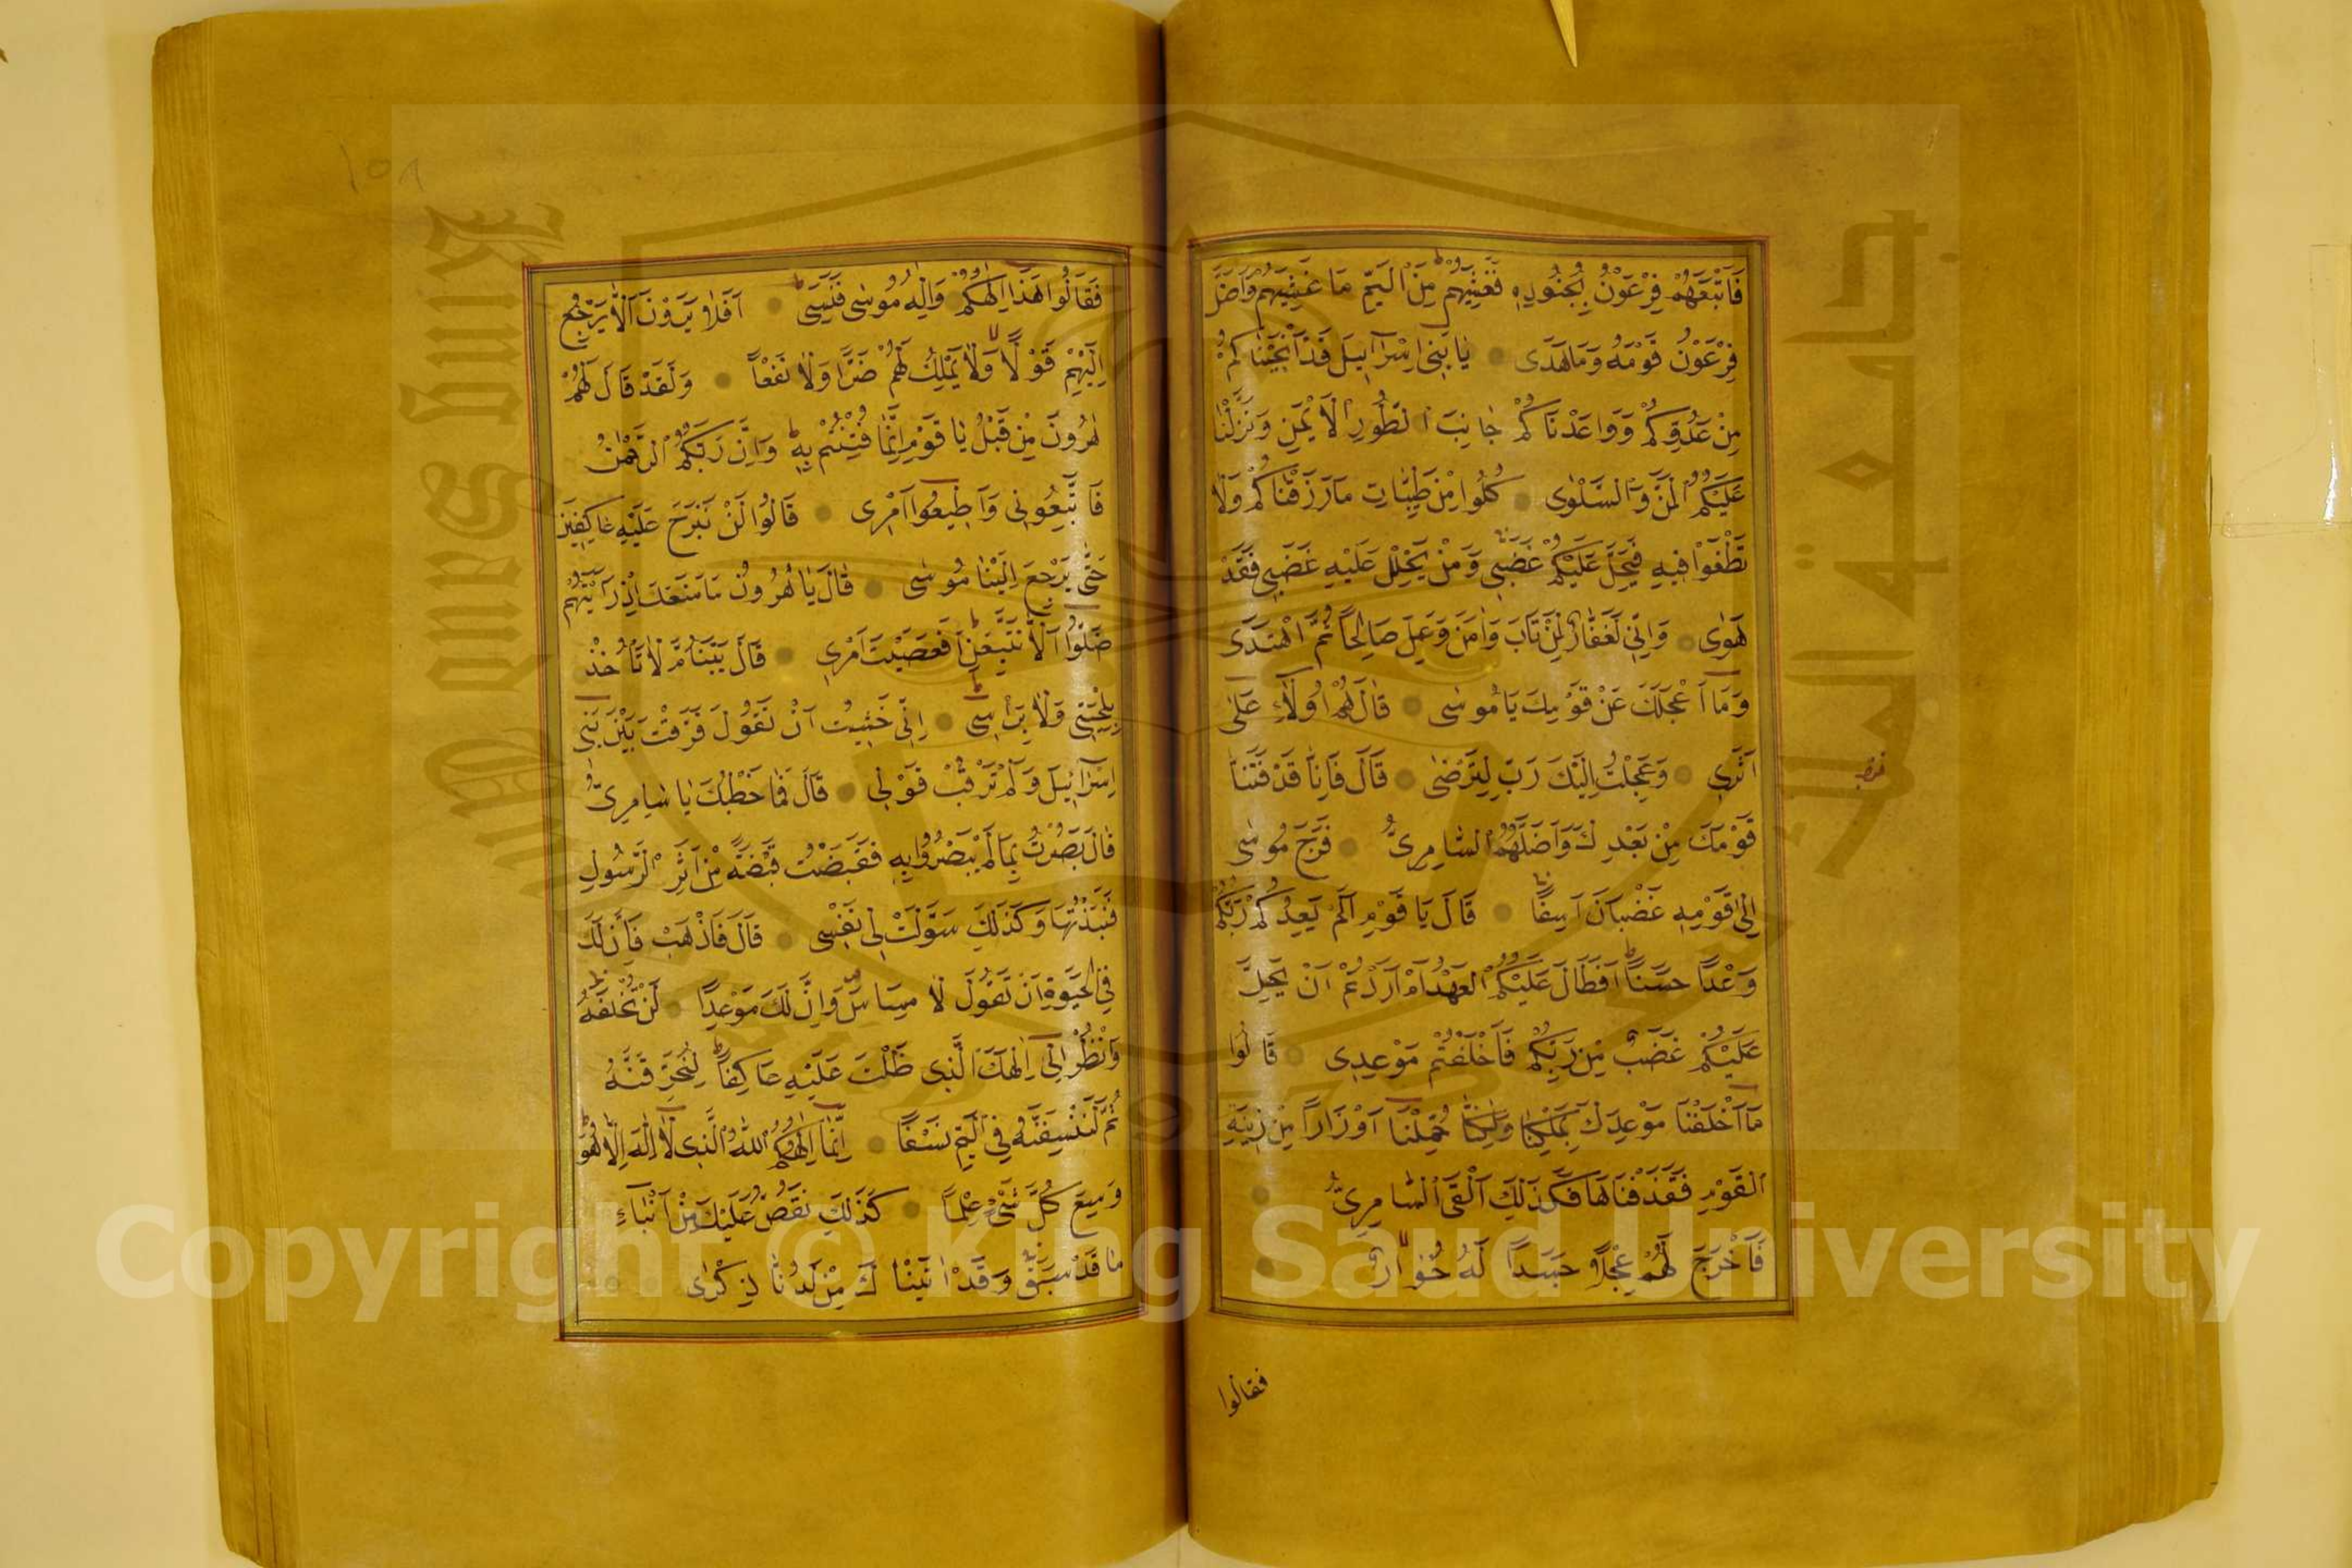 فَاَتْبَعَهُمْ فِرْعَوْنُ بِجُنُودِهٖ فَغَشِيَهُمْ مِنَ الْيَمِّ مَا غَشِيَهُمْ وَاَضَلَّ
فِرْعَوْنُ قَوْمَهُ وَمَاهَدٰى يَا بَنِى اِسْرَآئِيلَ قَدْاَنْجَيْنَاكُمْ
مِنْ عَدُوِّكُمْ وَوَاعَدْنَاكُمْ جَانِبَ الطُّورِ الْاَيْمَنَ وَنَزَّلْنَا
عَلَيْكُمُ الْمَنَّ وَالسَّلْوٰى كُلُوا مِنْ طَيِّبَاتِ مَارَزَقْنَاكُمْ وَلَا
تَطْغَوْا فِيهِ فَيَحِلَّ عَلَيْكُمْ غَضَبِى وَمَنْ يَحْلِلْ عَلَيْهِ غَضَبِى فَقَدْ
هَوٰى وَاِنِّى لَغَفَّارٌ لِمَنْ تَابَ وَاٰمَنَ وَعَمِلَ صَالِحًا ثُمَّ اهْتَدٰى
وَمَآ اَعْجَلَكَ عَنْ قَوْمِكَ يَا مُوسٰى قَالَ هُمْ اُولَآءِ عَلٰى
اَثَرِى وَعَجِلْتُ اِلَيْكَ رَبِّ لِتَرْضٰى قَالَ فَاِنَّا قَدْ فَتَنَّا
قَوْمَكَ مِنْ بَعْدِكَ وَاَضَلَّهُمُ السَّامِرِىُّ فَرَجَعَ مُوسٰى
اِلٰى قَوْمِهٖ غَضْبَانَ اَسِفًا قَالَ يَا قَوْمِ اَلَمْ يَعِدْكُمْ رَبُّكُمْ
وَعْدًا حَسَنًا اَفَطَالَ عَلَيْكُمُ الْعَهْدُ اَمْ اَرَدْتُمْ اَنْ يَحِلَّ
عَلَيْكُمْ غَضَبٌ مِنْ رَبِّكُمْ فَاَخْلَفْتُمْ مَوْعِدِى قَالُوا
مَآ اَخْلَفْنَا مَوْعِدَكَ بِمَلْكِنَا وَلٰكِنَّا حُمِّلْنَا اَوْزَارًا مِنْ زِينَةِ
الْقَوْمِ فَقَذَفْنَاهَا فَكَذٰلِكَ اَلْقَى السَّامِرِىُّ
فَاَخْرَجَ لَهُمْ عِجْلًا جَسَدًا لَهُ خُوَارٌ
فقالوا
١٥٨
فَقَالُوا هٰذَآ اِلٰهُكُمْ وَاِلٰهُ مُوسٰى فَنَسِىَ اَفَلَا يَرَوْنَ اَلَّا يَرْجِعُ
اِلَيْهِمْ قَوْلًا وَلَا يَمْلِكُ لَهُمْ ضَرًّا وَلَا نَفْعًا وَلَقَدْ قَالَ لَهُمْ
هٰرُونُ مِنْ قَبْلُ يَا قَوْمِ اِنَّمَا فُتِنْتُمْ بِهٖ وَاِنَّ رَبَّكُمُ الرَّحْمٰنُ
فَاتَّبِعُونِى وَاَطِيعُوا اَمْرِى قَالُوا لَنْ نَبْرَحَ عَلَيْهِ عَاكِفِينَ
حَتّٰى يَرْجِعَ اِلَيْنَا مُوسٰى قَالَ يَا هٰرُونُ مَا مَنَعَكَ اِذْ رَاَيْتَهُمْ
ضَلُّوا اَلَّا تَتَّبِعَنِ اَفَعَصَيْتَ اَمْرِى قَالَ يَبْنَؤُمَّ لَا تَأْخُذْ
بِلِحْيَتِى وَلَا بِرَأْسِى اِنِّى خَشِيتُ اَنْ تَقُولَ فَرَّقْتَ بَيْنَ بَنِى
اِسْرَآئِيلَ وَلَمْ تَرْقُبْ قَوْلِى قَالَ فَمَا خَطْبُكَ يَا سَامِرِىُّ
قَالَ بَصُرْتُ بِمَا لَمْ يَبْصُرُوا بِهٖ فَقَبَضْتُ قَبْضَةً مِنْ اَثَرِ الرَّسُولِ
فَنَبَذْتُهَا وَكَذٰلِكَ سَوَّلَتْ لِى نَفْسِى قَالَ فَاذْهَبْ فَاِنَّ لَكَ
فِى الْحَيٰوةِ اَنْ تَقُولَ لَا مِسَاسَ وَاِنَّ لَكَ مَوْعِدًا لَنْ تُخْلَفَهُ
وَانْظُرْ اِلٰٓى اِلٰهِكَ الَّذِى ظَلْتَ عَلَيْهِ عَاكِفًا لَنُحَرِّقَنَّهُ
ثُمَّ لَنَنْسِفَنَّهُ فِى الْيَمِّ نَسْفًا اِنَّمَآ اِلٰهُكُمُ اللّٰهُ الَّذِى لَآ اِلٰهَ اِلَّا هُوَ
وَسِعَ كُلَّ شَىْءٍ عِلْمًا كَذٰلِكَ نَقُصُّ عَلَيْكَ مِنْ اَنْبَآءِ
مَا قَدْ سَبَقَ وَقَدْ اٰتَيْنَاكَ مِنْ لَدُنَّا ذِكْرًا
Copyright © King Saud University
King Saud University
جامعة الملك سعود
1957